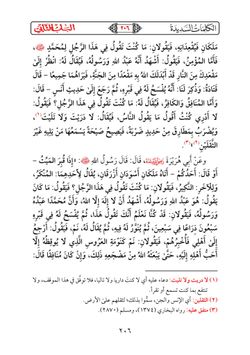 الكلمات السديدة
٢٠٦
مَلَكَانِ فَيُقْعِدَانِهِ، فَيَقُولَانِ: مَا كُنْتَ تَقُولُ فِي هَذَا الرَّجُلِ لِمُحَمَّدٍ ﷺ،
فَأَمَّا المُؤْمِنُ، فَيَقُولُ: أَشْهَدُ أَنَّهُ عَبْدُ اللهِ وَرَسُولُهُ، فَيُقَالُ لَهُ: انْظُرْ إِلَى
مَقْعَدِكَ مِنَ النَّارِ قَدْ أَبْدَلَكَ اللهُ بِهِ مَقْعَدًا مِنَ الجَنَّةِ، فَيَرَاهُمَا جَمِيعًا - قَالَ
قَتَادَةُ: وَذُكِرَ لَنَا: أَنَّهُ يُفْسَحُ لَهُ فِي قَبْرِهِ، ثُمَّ رَجَعَ إِلَى حَدِيثِ أَنَسٍ - قَالَ:
وَأَمَّا المُنَافِقُ وَالكَافِرُ، فَيُقَالُ لَهُ: مَا كُنْتَ تَقُولُ فِي هَذَا الرَّجُلِ؟ فَيَقُولُ:
لَا أَدْرِي كُنْتُ أَقُولُ مَا يَقُولُ النَّاسُ، فَيُقَالُ: لَا دَرَيْتَ وَلَا تَلَيْتَ(١)،
وَيُضْرَبُ بِمَطَارِقَ مِنْ حَدِيدٍ ضَرْبَةً، فَيَصِيحُ صَيْحَةً يَسْمَعُهَا مَنْ يَلِيهِ غَيْرَ
الثَّقَلَيْنِ(٢)»(٣).
وعَنْ أَبِي هُرَيْرَةَ، قَالَ: قَالَ رَسُولُ اللهِ ﷺ: «إِذَا قُبِرَ المَيِّتُ -
أَوْ قَالَ: أَحَدُكُمْ - أَتَاهُ مَلَكَانِ أَسْوَدَانِ أَزْرَقَانِ، يُقَالُ لِأَحَدِهِمَا: المُنْكَرُ،
وَلِلْآخَرِ: النَّكِيرُ، فَيَقُولَانِ: مَا كُنْتَ تَقُولُ فِي هَذَا الرَّجُلِ؟ فَيَقُولُ: مَا كَانَ
يَقُولُ: هُوَ عَبْدُ اللهِ وَرَسُولُهُ، أَشْهَدُ أَنْ لَا إِلَهَ إِلَّا اللهُ، وَأَنَّ مُحَمَّدًا عَبْدُهُ
وَرَسُولُهُ، فَيَقُولَانِ: قَدْ كُنَّا نَعْلَمُ أَنَّكَ تَقُولُ هَذَا، ثُمَّ يُفْسَحُ لَهُ فِي قَبْرِهِ
سَبْعُونَ ذِرَاعًا فِي سَبْعِينَ، ثُمَّ يُنَوَّرُ لَهُ فِيهِ، ثُمَّ يُقَالُ لَهُ: نَمْ، فَيَقُولُ: أَرْجِعُ
إِلَى أَهْلِي فَأُخْبِرُهُمْ، فَيَقُولَانِ: نَمْ كَنَوْمَةِ العَرُوسِ الَّذِي لَا يُوقِظُهُ إِلَّا
أَحَبُّ أَهْلِهِ إِلَيْهِ، حَتَّى يَبْعَثَهُ اللهُ مِنْ مَضْجَعِهِ ذَلِكَ، وَإِنْ كَانَ مُنَافِقًا قَالَ:
(١) لا دريت ولا تليت: دعاء عليه أي لا كنت داريا ولا تاليا، فلا توفّق في هذا الموقف، ولا
تنتفع بما كنت تسمع أو تقرأ.
(٢) الثقلين: أي الإنس والجن، سموا بذلك؛ لثقلهم على الأرض.
(٣) متفق عليه: رواه البخاري (١٣٧٤)، ومسلم (٢٨٧٠).
٢٠٦